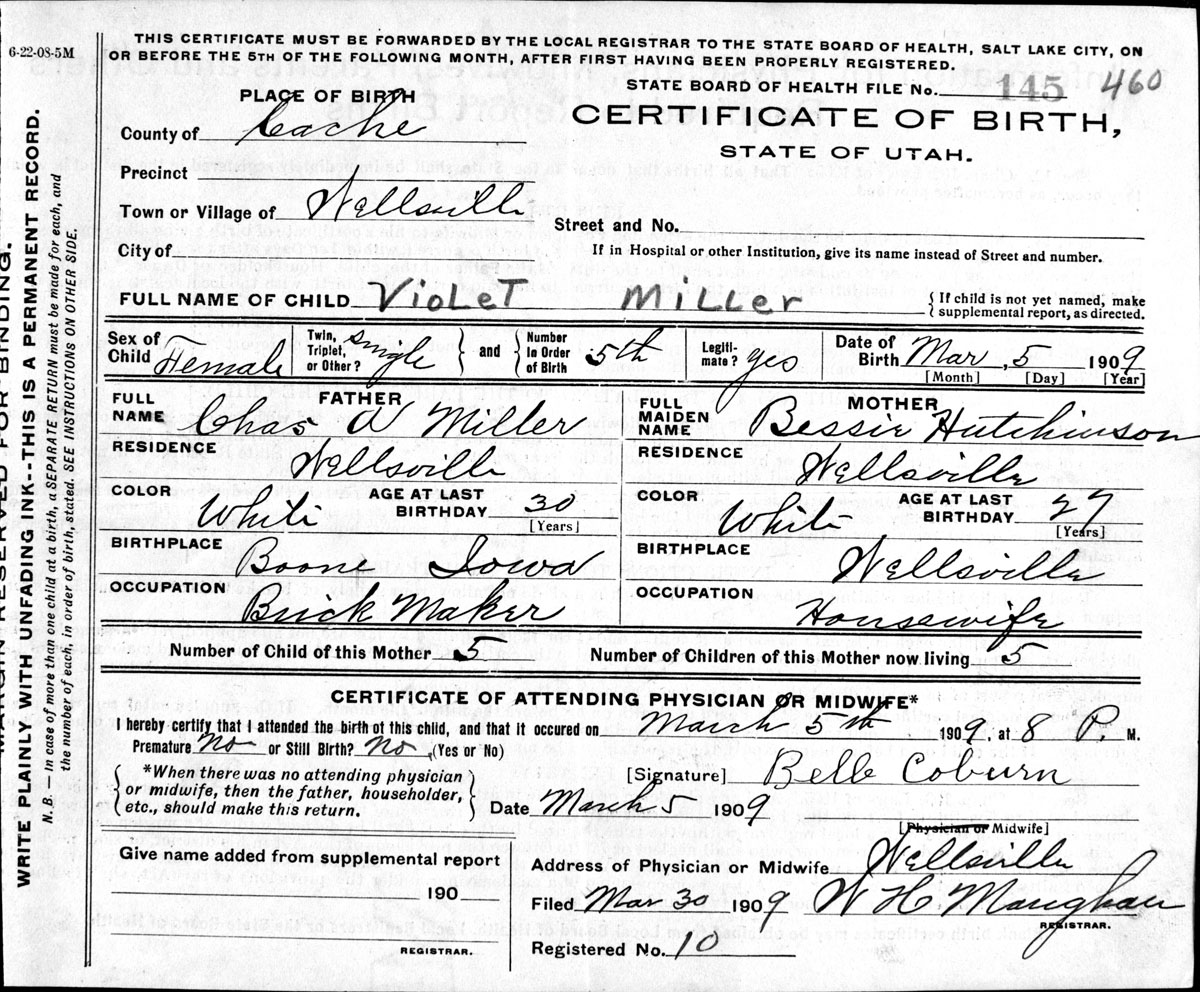 6-22-08-5M
THIS CERTIFICATE MUST BE FORWARDED BY THE LOCAL REGISTRAR TO THE STATE BOARD OF HEALTH, SALT LAKE CITY, ON
OR BEFORE THE 5TH OF THE FOLLOWING MONTH, AFTER FIRST HAVING BEEN PROPERLY REGISTERED.
STATE BOARD OF HEALTH FILE No. 145 460
PLACE OF BIRTH
CERTIFICATE OF BIRTH,
STATE OF UTAH.
County of Cache
Precinct
Town or Village of Wellsville
Street and No.
City of
If in Hospital or other Institution, give its name instead of Street and number.
FULL NAME OF CHILD Violet Miller
{ If child is not yet named, make
supplemental report, as directed.
Sex of Child Female
Twin, Triplet, or Other? single } and { Number in Order of Birth 5th
Legiti-mate? yes
Date of Birth Mar, 5 1909
[Month] [Day] [Year]
FATHER
FULL NAME Chas A Miller
MOTHER
FULL MAIDEN NAME Bessie Hutchinson
RESIDENCE Wellsville
RESIDENCE Wellsville
COLOR White AGE AT LAST BIRTHDAY 30 [Years]
COLOR White AGE AT LAST BIRTHDAY 27 [Years]
BIRTHPLACE Boone Iowa
BIRTHPLACE Wellsville
OCCUPATION Buck Maker
OCCUPATION Housewife
Number of Child of this Mother 5 Number of Children of this Mother now living 5
CERTIFICATE OF ATTENDING PHYSICIAN OR MIDWIFE*
I hereby certify that I attended the birth of this child, and that it occured on March 5th 1909, at 8 P M.
Premature? no or Still Birth? no, (Yes or No)
{ *When there was no attending physician
or midwife, then the father, householder,
etc., should make this return. }
[Signature] Belle Coburn
Date March 5 1909
[Physician or Midwife]
Give name added from supplemental report
190
REGISTRAR.
Address of Physician or Midwife Wellsville
Filed Mar 30 1909 W H Maughan
REGISTRAR.
Registered No. 10
MARGIN RESERVED FOR BINDING.
WRITE PLAINLY WITH UNFADING INK--THIS IS A PERMANENT RECORD.
N. B. — In case of more than one child at a birth, a SEPARATE RETURN must be made for each, and
the number of each, in order of birth, stated. SEE INSTRUCTIONS ON OTHER SIDE.